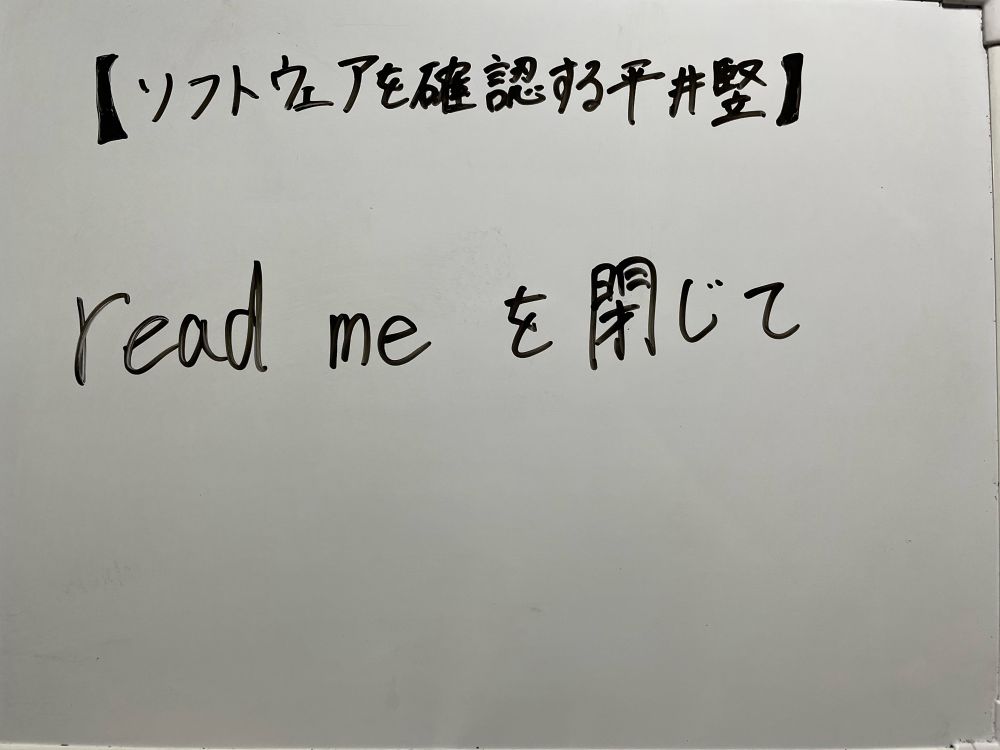 【ソフトウェアを確認する平井堅】
read me を閉じて